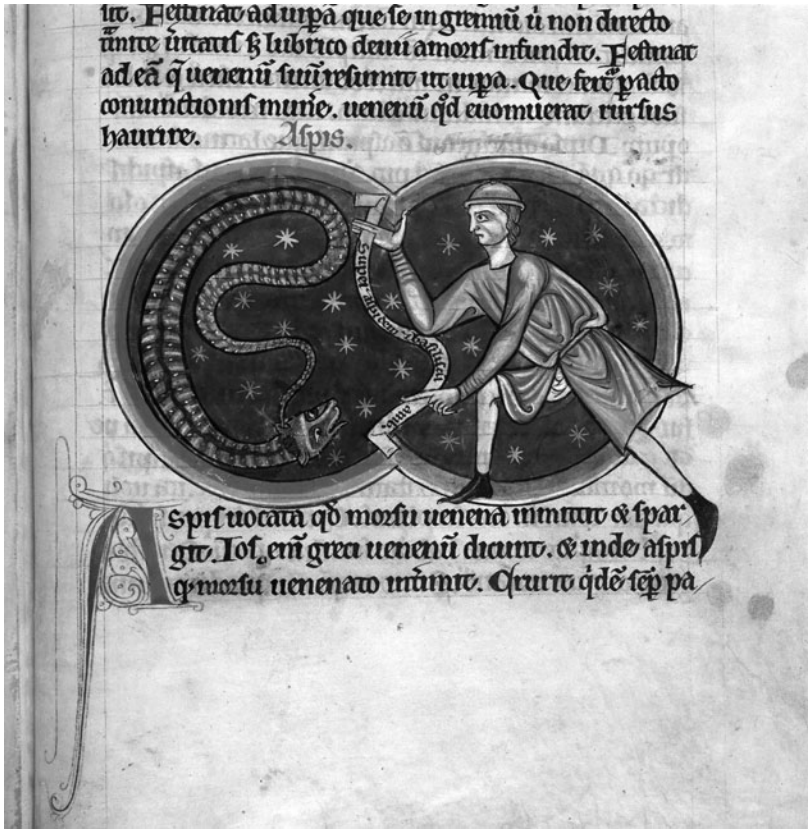 it. Festinat ad uip̄a que se in gremiū ū non directo
t̄mite ūitatis sȝ lubrico deuii amoris infundit. Festinat
ad eā q̄ uenenū suū resumit ut uip̄a. Que fert᷑ pacto
coniunctionis mun̄e. uenenū qd̄ euomuerat rursus
haurire. Aspis.
Super aspidem ⁊ basiliscū
amb.
Aspis uocata qd̄ morsu uenena inmittit & spar
git. Ios. em̄ greci uenenū dicunt. & inde aspis
q̄ morsu uenenato int̄imit.